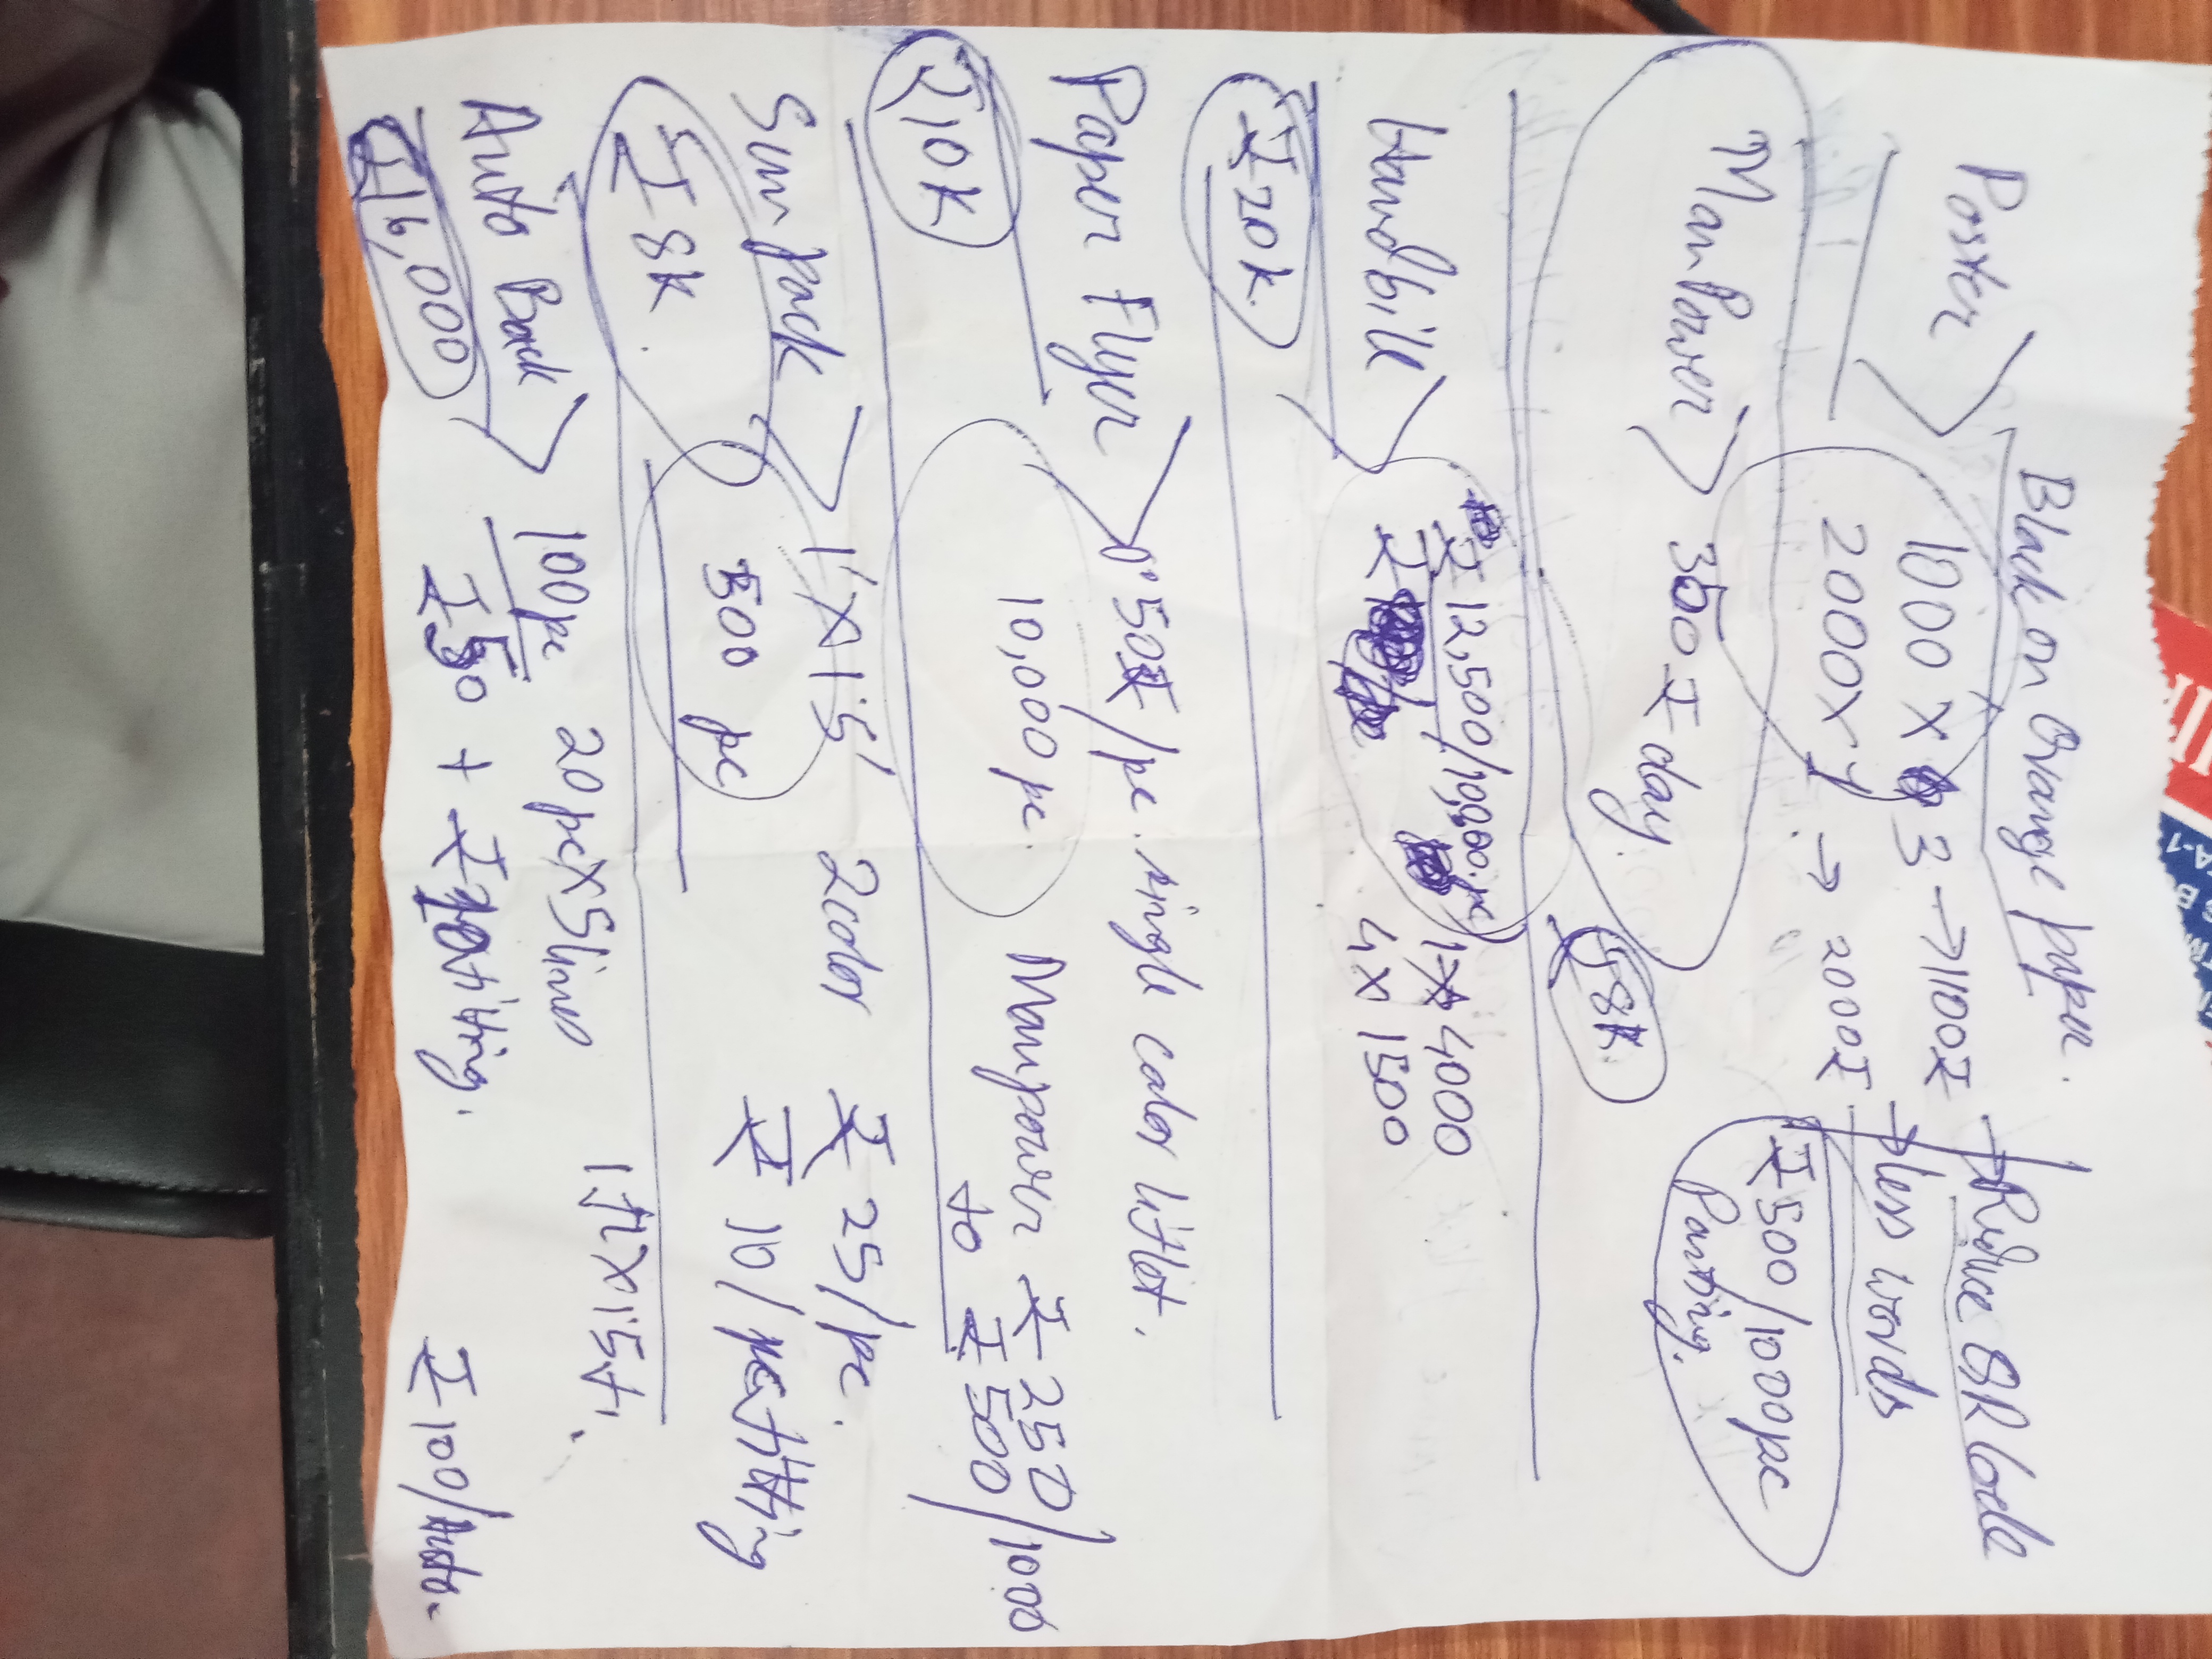 Black on Orange paper.
Poster
1000 X 3 → 1100₹
2000 X 1 → 2000₹
→ Reduce QR Code
→ less words
₹500/1000pc
Pasting.
ManPower 350 ₹ day.
₹8K.
Handbill
₹12,500/10,000.pc
₹
1 X 4000
4 X 1500
₹20K.
Paper Flyer
0.50₹/pc. single color liflet.
10,000 pc.
Manpower ₹250
to ₹500 /1000
₹10K
Sun pack
1' X 1.5' 2color ₹25/pc.
500 pc
₹10/pc fitting
₹8K.
1ft X 1.5ft.
Auto Back
100pc 20pc X 5 lines
₹50 + ₹ fitting.
₹100/Auto.
₹16,000